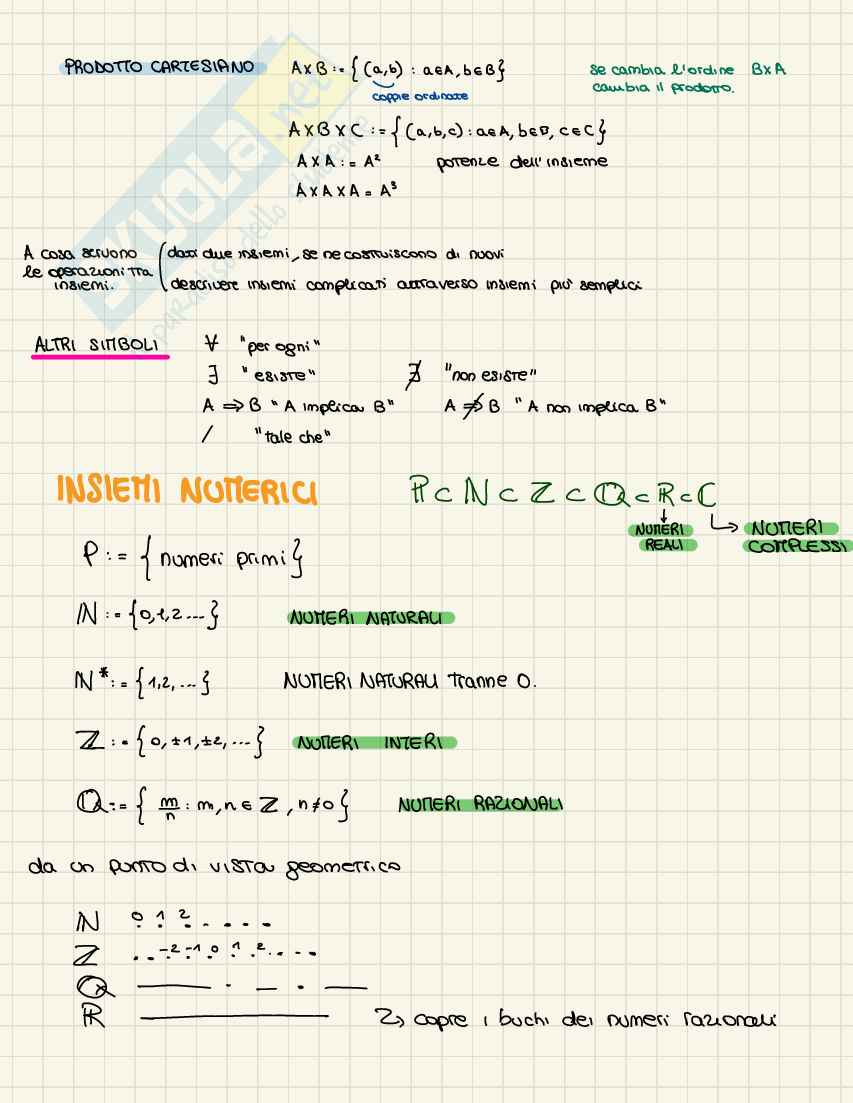 PRODOTTO CARTESIANO A×B := {(a,b) : a∈A, b∈B} se cambia l'ordine B×A
coppie ordinate cambia il prodotto.
A×B×C := {(a,b,c) : a∈A, b∈B, c∈C}
A×A := A² potenze dell'insieme
A×A×A = A³
A cosa servono ( dati due insiemi, se ne costruiscono di nuovi
le operazioni tra
insiemi. descrivere insiemi complicati attraverso insiemi più semplici
ALTRI SIMBOLI ∀ "per ogni"
∃ "esiste" ∄ "non esiste"
A ⇒ B "A implica B" A ⇏ B "A non implica B"
/ "tale che"
INSIEMI NUMERICI P ⊂ ℕ ⊂ ℤ ⊂ ℚ ⊂ ℝ ⊂ ℂ
↓ NUMERI REALI ↳ NUMERI COMPLESSI
P := {numeri primi}
ℕ := {0,1,2 ...} NUMERI NATURALI
ℕ* := {1,2, ...} NUMERI NATURALI tranne 0.
ℤ := {0, ±1, ±2, ...} NUMERI INTERI
ℚ := { m/n : m, n ∈ ℤ, n≠0 } NUMERI RAZIONALI
da un punto di vista geometrico
ℕ 0 1 2 . . . . .
ℤ . . -2 -1 0 1 2 . . . .
ℚ —— · — · ——
ℝ ———— ↳ copre i buchi dei numeri razionali
SKUOLA.net
paradiso dello studente